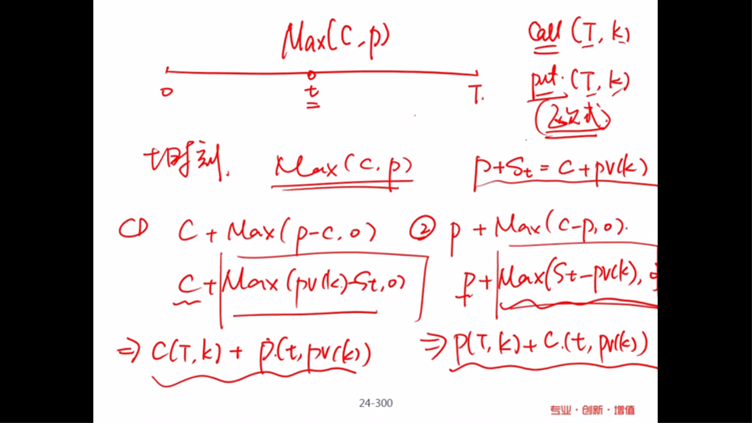 Max(C,p)
Call (T,k)
0 t T.
put. (T,k)
t时刻. Max(C,p) p+St = c+pv(k)
① C+Max(p-c,0) ② p+Max(c-p,0).
C+Max(pv(k)-St,0) p+Max(St-pv(k),0)
⇒ C(T,k) + p.(t,pv(k)) ⇒ p(T,k)+C.(t,pv(k))
24-300
专业·创新·增值